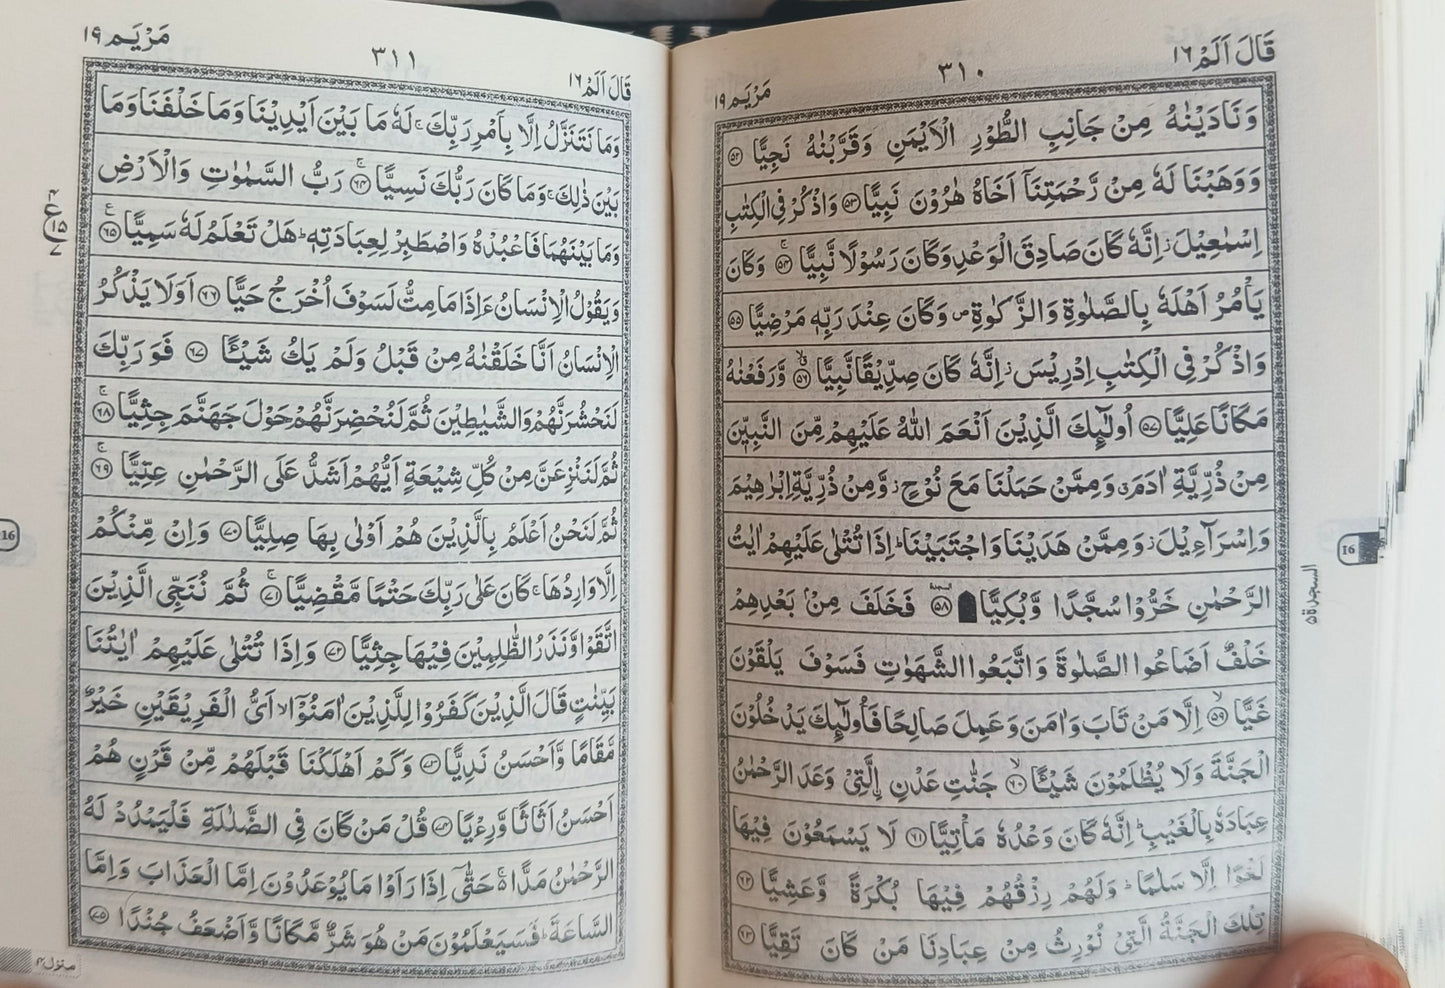 قَالَ اَلَمْ ١٦
٣١٠
مَرْيَم ١٩
وَنَادَيْنٰهُ مِنْ جَانِبِ الطُّوْرِ الْاَيْمَنِ وَقَرَّبْنٰهُ نَجِيًّا ﴿٥٢﴾
وَوَهَبْنَا لَهٗ مِنْ رَّحْمَتِنَاۤ اَخَاهُ هٰرُوْنَ نَبِيًّا ﴿٥٣﴾ وَاذْكُرْ فِي الْكِتٰبِ
اِسْمٰعِيْلَ ز اِنَّهٗ كَانَ صَادِقَ الْوَعْدِ وَكَانَ رَسُوْلًا نَّبِيًّا ﴿٥٤﴾ وَكَانَ
يَاْمُرُ اَهْلَهٗ بِالصَّلٰوةِ وَالزَّكٰوةِ ص وَكَانَ عِنْدَ رَبِّهٖ مَرْضِيًّا ﴿٥٥﴾
وَاذْكُرْ فِي الْكِتٰبِ اِدْرِيْسَ ز اِنَّهٗ كَانَ صِدِّيْقًا نَّبِيًّا ﴿٥٦﴾ وَّرَفَعْنٰهُ
مَكَانًا عَلِيًّا ﴿٥٧﴾ اُولٰٓئِكَ الَّذِيْنَ اَنْعَمَ اللّٰهُ عَلَيْهِمْ مِّنَ النَّبِيّٖنَ
مِنْ ذُرِّيَّةِ اٰدَمَ ق وَمِمَّنْ حَمَلْنَا مَعَ نُوْحٍ ز وَّمِنْ ذُرِّيَّةِ اِبْرٰهِيْمَ
وَاِسْرَآءِيْلَ ز وَمِمَّنْ هَدَيْنَا وَاجْتَبَيْنَا ط اِذَا تُتْلٰى عَلَيْهِمْ اٰيٰتُ
الرَّحْمٰنِ خَرُّوْا سُجَّدًا وَّبُكِيًّا ﴿٥٨﴾ فَخَلَفَ مِنْۢ بَعْدِهِمْ
خَلْفٌ اَضَاعُوا الصَّلٰوةَ وَاتَّبَعُوا الشَّهَوٰتِ فَسَوْفَ يَلْقَوْنَ
غَيًّا ﴿٥٩﴾ اِلَّا مَنْ تَابَ وَاٰمَنَ وَعَمِلَ صَالِحًا فَاُولٰٓئِكَ يَدْخُلُوْنَ
الْجَنَّةَ وَلَا يُظْلَمُوْنَ شَيْـًٔا ﴿٦٠﴾ جَنّٰتِ عَدْنِ ِۨالَّتِيْ وَعَدَ الرَّحْمٰنُ
عِبَادَهٗ بِالْغَيْبِ ط اِنَّهٗ كَانَ وَعْدُهٗ مَاْتِيًّا ﴿٦١﴾ لَا يَسْمَعُوْنَ فِيْهَا
لَغْوًا اِلَّا سَلٰمًا ط وَلَهُمْ رِزْقُهُمْ فِيْهَا بُكْرَةً وَّعَشِيًّا ﴿٦٢﴾
تِلْكَ الْجَنَّةُ الَّتِيْ نُوْرِثُ مِنْ عِبَادِنَا مَنْ كَانَ تَقِيًّا ﴿٦٣﴾
16
السجدة ٥
مَرْيَم ١٩
٣١١
قَالَ اَلَمْ ١٦
وَمَا نَتَنَزَّلُ اِلَّا بِاَمْرِ رَبِّكَ ج لَهٗ مَا بَيْنَ اَيْدِيْنَا وَمَا خَلْفَنَا وَمَا
بَيْنَ ذٰلِكَ ج وَمَا كَانَ رَبُّكَ نَسِيًّا ﴿٦٤﴾ رَبُّ السَّمٰوٰتِ وَالْاَرْضِ
وَمَا بَيْنَهُمَا فَاعْبُدْهُ وَاصْطَبِرْ لِعِبَادَتِهٖ ط هَلْ تَعْلَمُ لَهٗ سَمِيًّا ﴿٦٥﴾
وَيَقُوْلُ الْاِنْسَانُ ءَاِذَا مَا مِتُّ لَسَوْفَ اُخْرَجُ حَيًّا ﴿٦٦﴾ اَوَلَا يَذْكُرُ
الْاِنْسَانُ اَنَّا خَلَقْنٰهُ مِنْ قَبْلُ وَلَمْ يَكُ شَيْـًٔا ﴿٦٧﴾ فَوَرَبِّكَ
لَنَحْشُرَنَّهُمْ وَالشَّيٰطِيْنَ ثُمَّ لَنُحْضِرَنَّهُمْ حَوْلَ جَهَنَّمَ جِثِيًّا ﴿٦٨﴾
ثُمَّ لَنَنْزِعَنَّ مِنْ كُلِّ شِيْعَةٍ اَيُّهُمْ اَشَدُّ عَلَى الرَّحْمٰنِ عِتِيًّا ﴿٦٩﴾
ثُمَّ لَنَحْنُ اَعْلَمُ بِالَّذِيْنَ هُمْ اَوْلٰى بِهَا صِلِيًّا ﴿٧٠﴾ وَاِنْ مِّنْكُمْ
اِلَّا وَارِدُهَا ج كَانَ عَلٰى رَبِّكَ حَتْمًا مَّقْضِيًّا ﴿٧١﴾ ثُمَّ نُنَجِّي الَّذِيْنَ
اتَّقَوْا وَّنَذَرُ الظّٰلِمِيْنَ فِيْهَا جِثِيًّا ﴿٧٢﴾ وَاِذَا تُتْلٰى عَلَيْهِمْ اٰيٰتُنَا
بَيِّنٰتٍ قَالَ الَّذِيْنَ كَفَرُوْا لِلَّذِيْنَ اٰمَنُوْۤا لا اَيُّ الْفَرِيْقَيْنِ خَيْرٌ
مَّقَامًا وَّاَحْسَنُ نَدِيًّا ﴿٧٣﴾ وَكَمْ اَهْلَكْنَا قَبْلَهُمْ مِّنْ قَرْنٍ هُمْ
اَحْسَنُ اَثَاثًا وَّرِءْيًا ﴿٧٤﴾ قُلْ مَنْ كَانَ فِي الضَّلٰلَةِ فَلْيَمْدُدْ لَهُ
الرَّحْمٰنُ مَدًّا ج حَتّٰۤى اِذَا رَاَوْا مَا يُوْعَدُوْنَ اِمَّا الْعَذَابَ وَاِمَّا
السَّاعَةَ ط فَسَيَعْلَمُوْنَ مَنْ هُوَ شَرٌّ مَّكَانًا وَّاَضْعَفُ جُنْدًا ﴿٧٥﴾
٤
ع ١٥
٧
16
منزل ٤